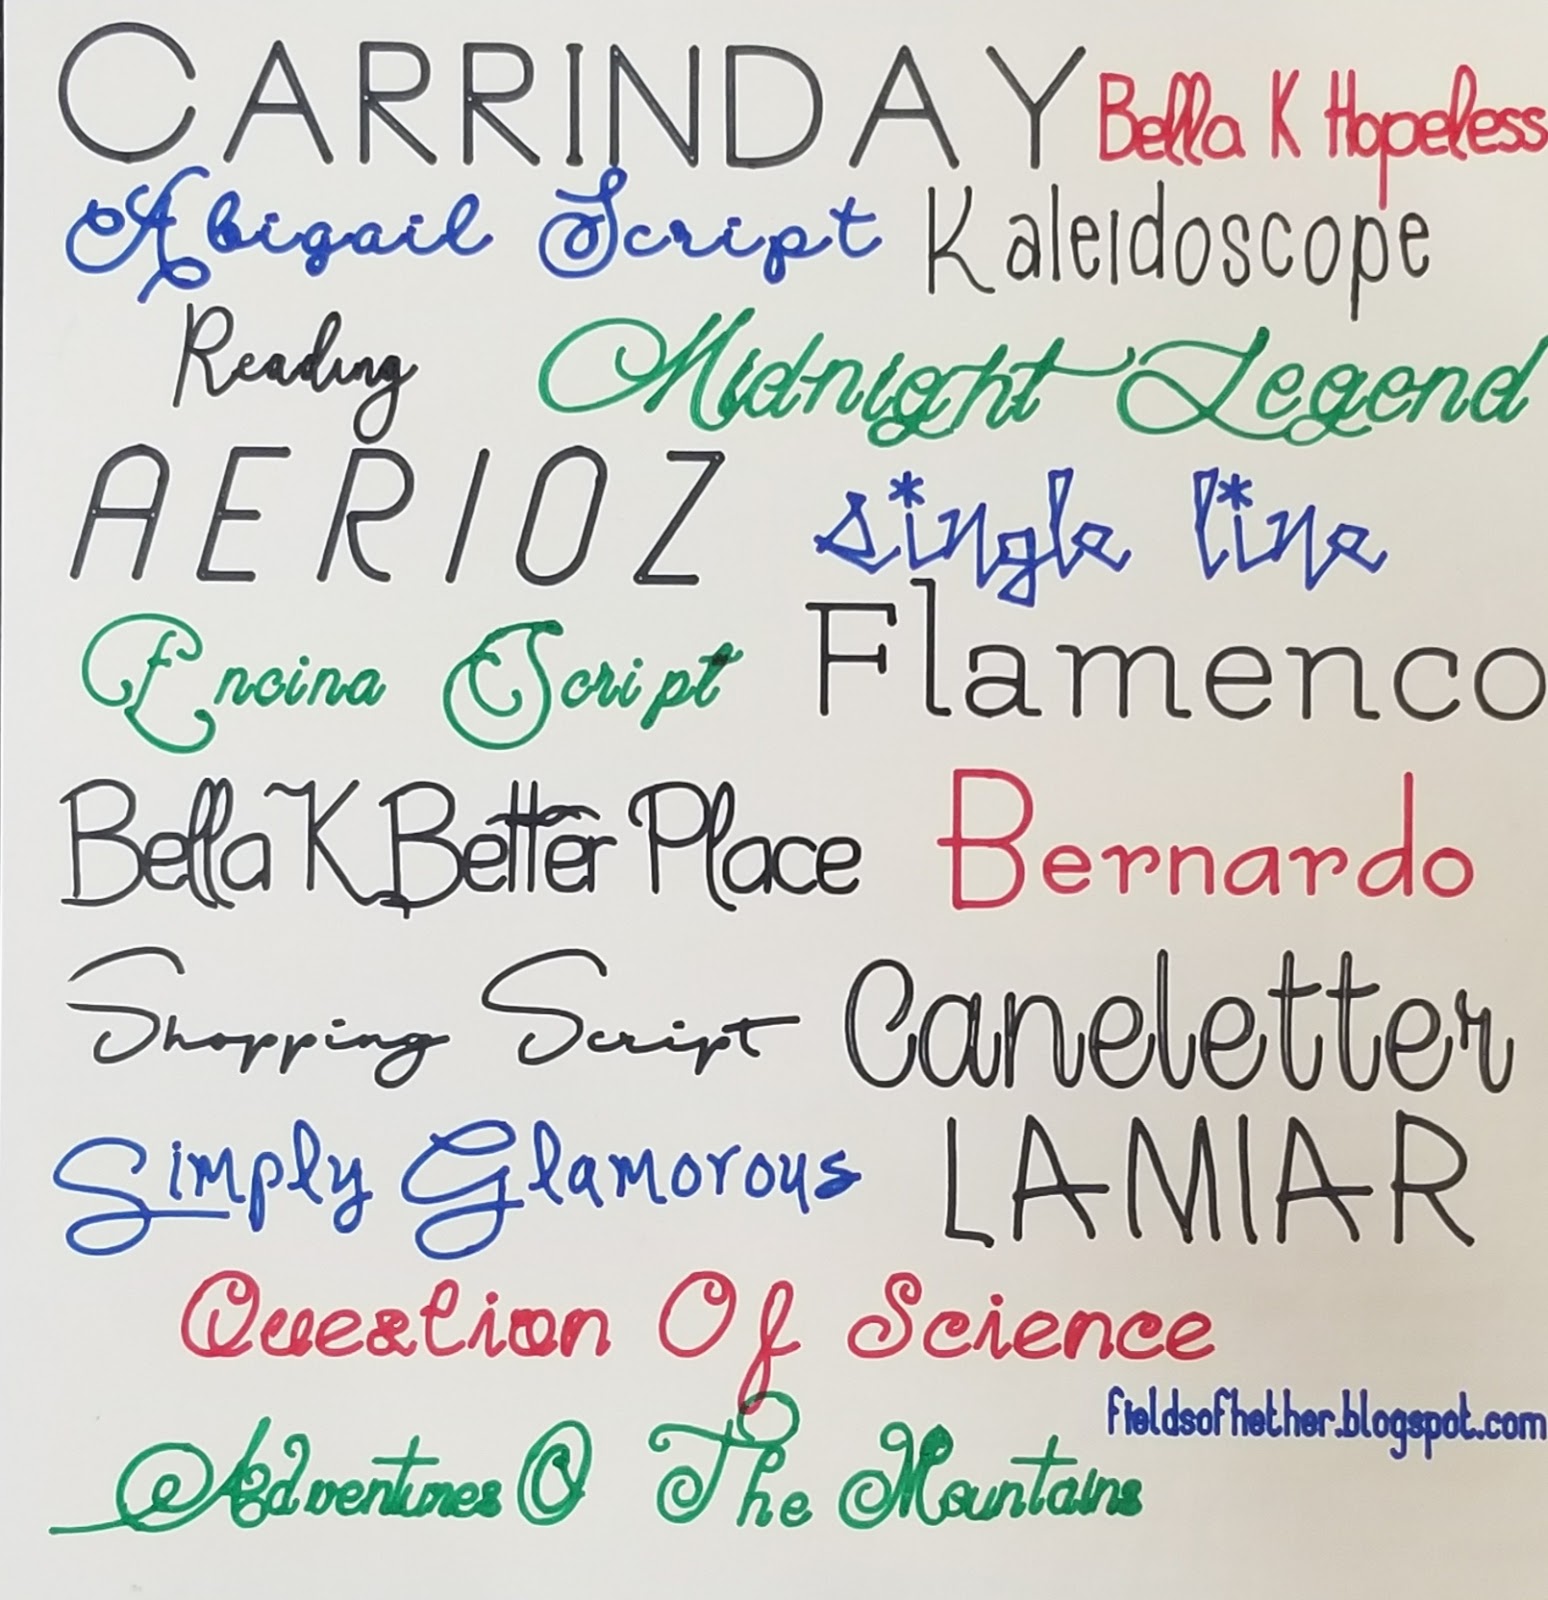 CARRINDAY Bella K Hopeless
Abigail Script Kaleidoscope
Reading Midnight Legend
AERIOZ single line
Encina Script Flamenco
Bella K Better Place Bernardo
Shopping Script Caneletter
Simply Glamorous LAMIAR
Question Of Science
fieldsofhether.blogspot.com
Adventures O The Mountains